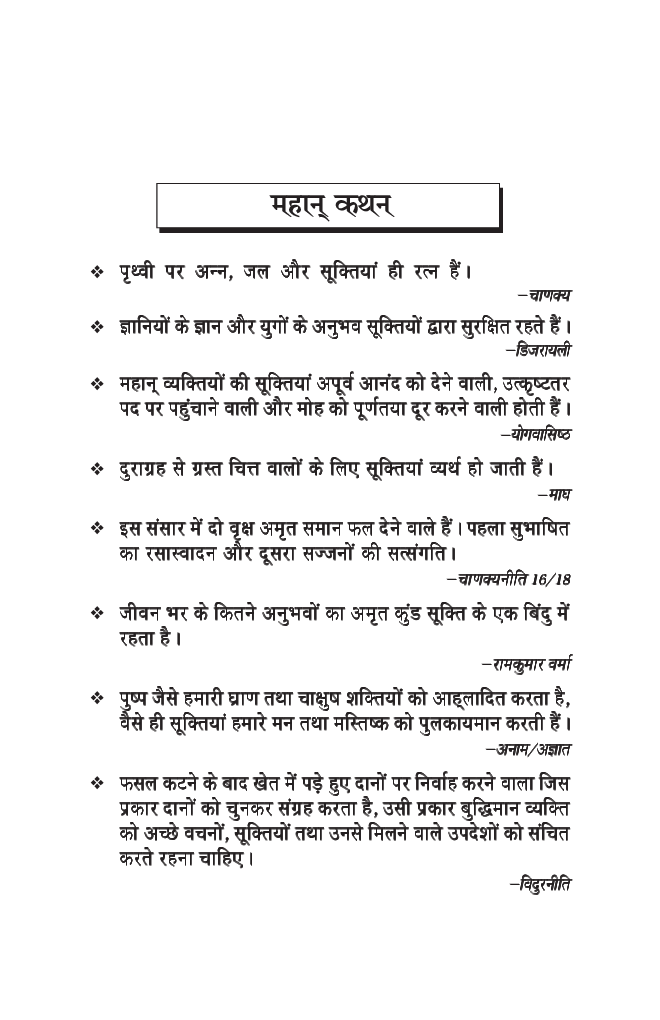 महान् कथन
❖ पृथ्वी पर अन्न, जल और सूक्तियां ही रत्न हैं।
–चाणक्य
❖ ज्ञानियों के ज्ञान और युगों के अनुभव सूक्तियों द्वारा सुरक्षित रहते हैं।
–डिजरायली
❖ महान् व्यक्तियों की सूक्तियां अपूर्व आनंद को देने वाली, उत्कृष्टतर
पद पर पहुंचाने वाली और मोह को पूर्णतया दूर करने वाली होती हैं।
–योगवासिष्ठ
❖ दुराग्रह से ग्रस्त चित्त वालों के लिए सूक्तियां व्यर्थ हो जाती हैं।
–माघ
❖ इस संसार में दो वृक्ष अमृत समान फल देने वाले हैं। पहला सुभाषित
का रसास्वादन और दूसरा सज्जनों की सत्संगति।
–चाणक्यनीति 16/18
❖ जीवन भर के कितने अनुभवों का अमृत कुंड सूक्ति के एक बिंदु में
रहता है।
–रामकुमार वर्मा
❖ पुष्प जैसे हमारी घ्राण तथा चाक्षुष शक्तियों को आह्लादित करता है,
वैसे ही सूक्तियां हमारे मन तथा मस्तिष्क को पुलकायमान करती हैं।
–अनाम/अज्ञात
❖ फसल कटने के बाद खेत में पड़े हुए दानों पर निर्वाह करने वाला जिस
प्रकार दानों को चुनकर संग्रह करता है, उसी प्रकार बुद्धिमान व्यक्ति
को अच्छे वचनों, सूक्तियों तथा उनसे मिलने वाले उपदेशों को संचित
करते रहना चाहिए।
–विदुरनीति